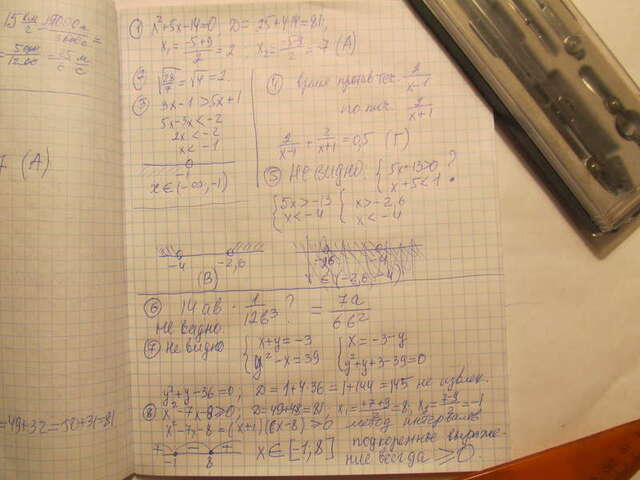 15 км/с
5000
12 с
= 15 м/с
7 (А)
= 49+32=50+31=81.
① x²+5x-14=0 D = 25+4·14=81;
x₁ = (-5+9)/2 = 2 x₂ = (-5-9)/2 = -7 (А)
② √(28/7) = √4 = 2
③ 3x-1 > 5x+1
5x-3x < -2
2x < -2
x < -1
-1
x ∈ (-∞, -1)
④ время против теч. 2/(x-1)
по теч. 2/(x+1)
2/(x-1) + 2/(x+1) = 0,5 (Г)
⑤ Не видно. { 5x+13>0 x+5<1 ?
{ 5x>-13 x<-4 { x>-2,6 x<-4
-4 -2,6
(В)
-2,6 -4
x ∈ (-2,6, -4)
⑥ 14ab · 1/12b³ ? = 7a/6b²
Не видно.
⑦ Не видно { x+y=-3 y²-x=39 { x=-3-y y²+y+3-39=0
y²+y-36=0; D=1+4·36=1+144=145 не извлек.
⑧ x²-7x-8≥0; D=49+48=81; x₁=(+7+9)/2=8; x₂=(7-9)/2=-1
x²-7x-8=(x+1)(x-8) ≥0 метод интервалов
+ - +
-1 8
x ∈ [-1, 8] подкоренное выраже-
ние всегда ≥0.